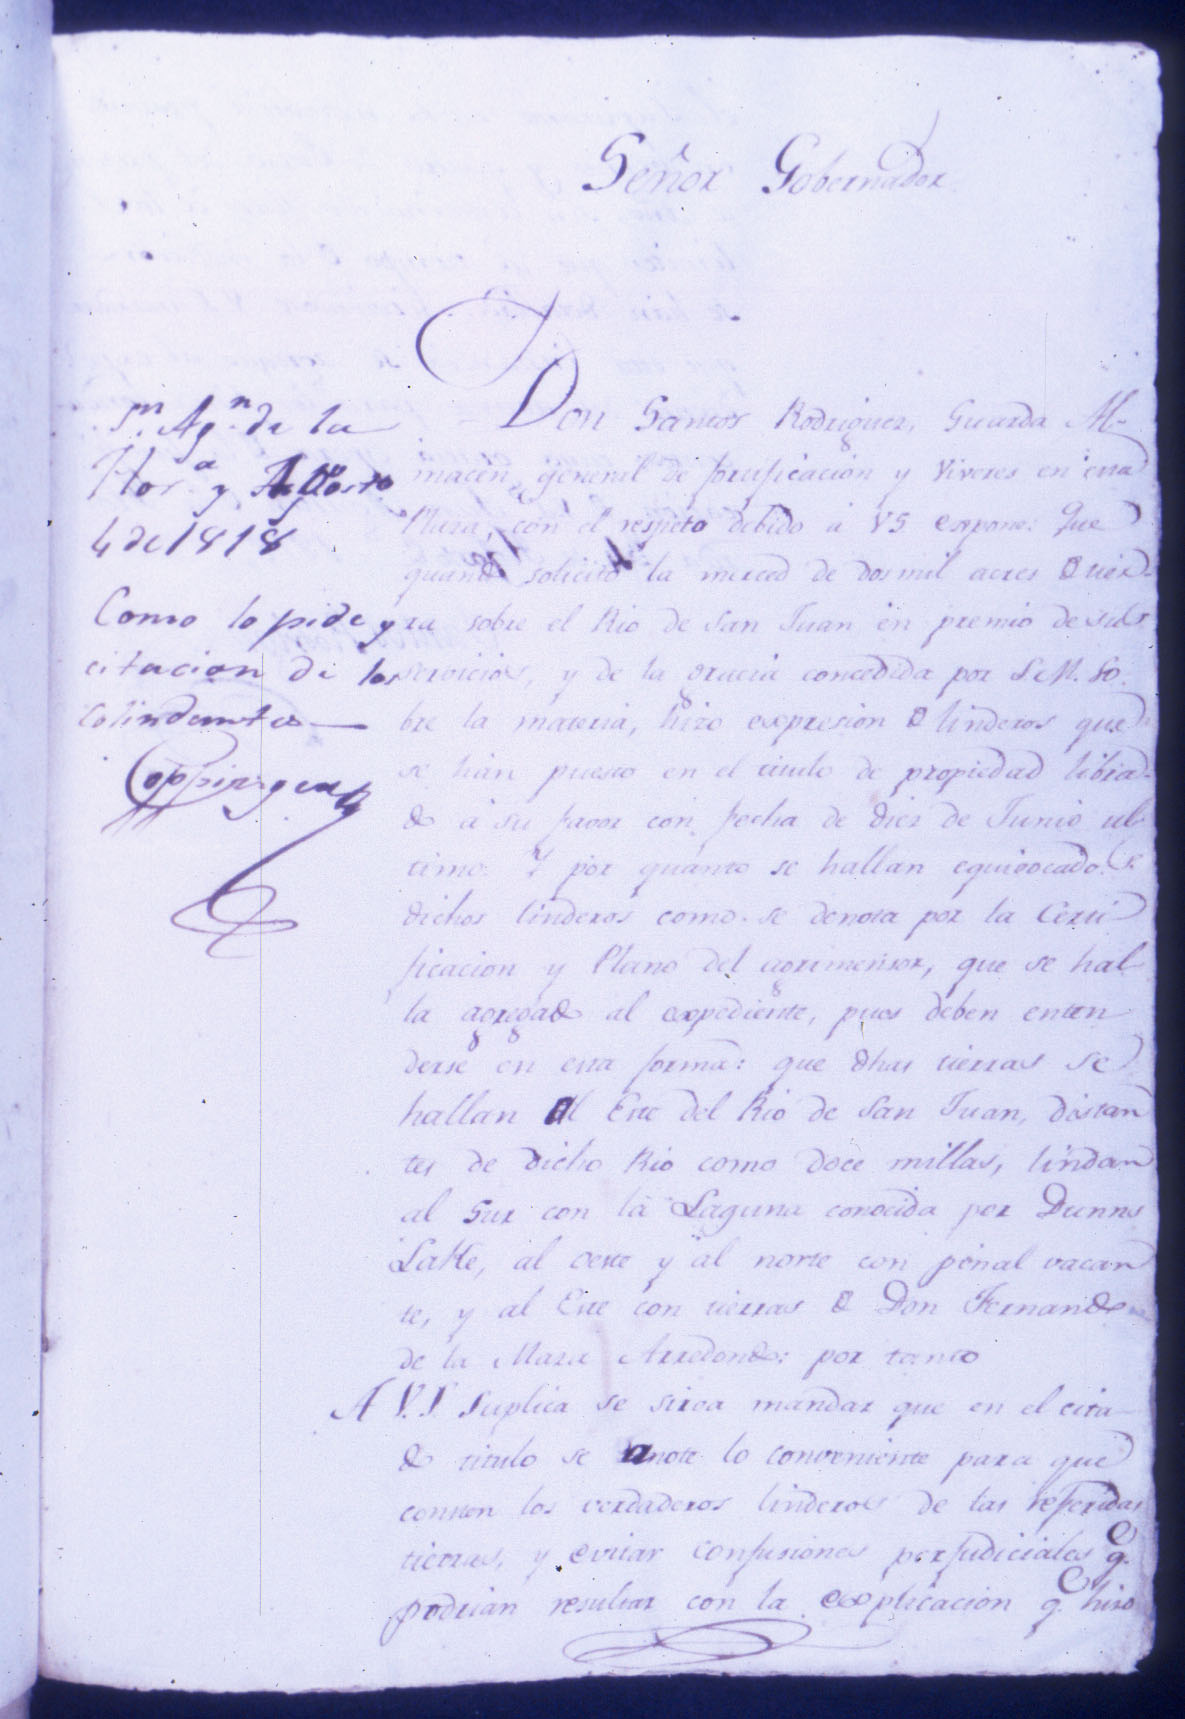 Señor Gobernador
Don Santos Rodriguez, Guarda Al-
macen general de fortificacion y Viveres en esta
Plaza, con el respeto debido á VS expone: Que
quando solicitó la merced de dos mil acres de tier-
ra sobre el Rio de San Juan en premio de sus
servicios, y de la gracia concedida por S.M. so-
bre la materia, hizo expresion de linderos que
se han puesto en el titulo de propiedad libra-
do á su favor con fecha de diez de Junio ul-
timo. Y por quanto se hallan equivocados
dichos linderos como se denota por la Certi-
ficacion y Plano del agrimensor, que se hal-
la agregado al expediente, pues deben enten
derse en esta forma: que dhas tierras se
hallan al Este del Rio de San Juan, distan
tes de dicho Rio como doce millas, lindan
al Sur con la Laguna conocida por Dunns
Lake, al oeste y al norte con pinal vacan
te, y al Este con tierras de Don Fernando
de la Maza Arredondo: por tanto
A V.S. Suplica se sirva mandar que en el cita-
do titulo se anote lo conveniente para que
consten los verdaderos linderos de las referidas
tierras, y evitar confusiones perjudiciales q.e
podrian resultar con la explicacion q.e hizo
Sn. Agn. de la
Flor.a y Agosto
4 de 1818
Como lo pide y
citacion de los
colindantes
Coppinger